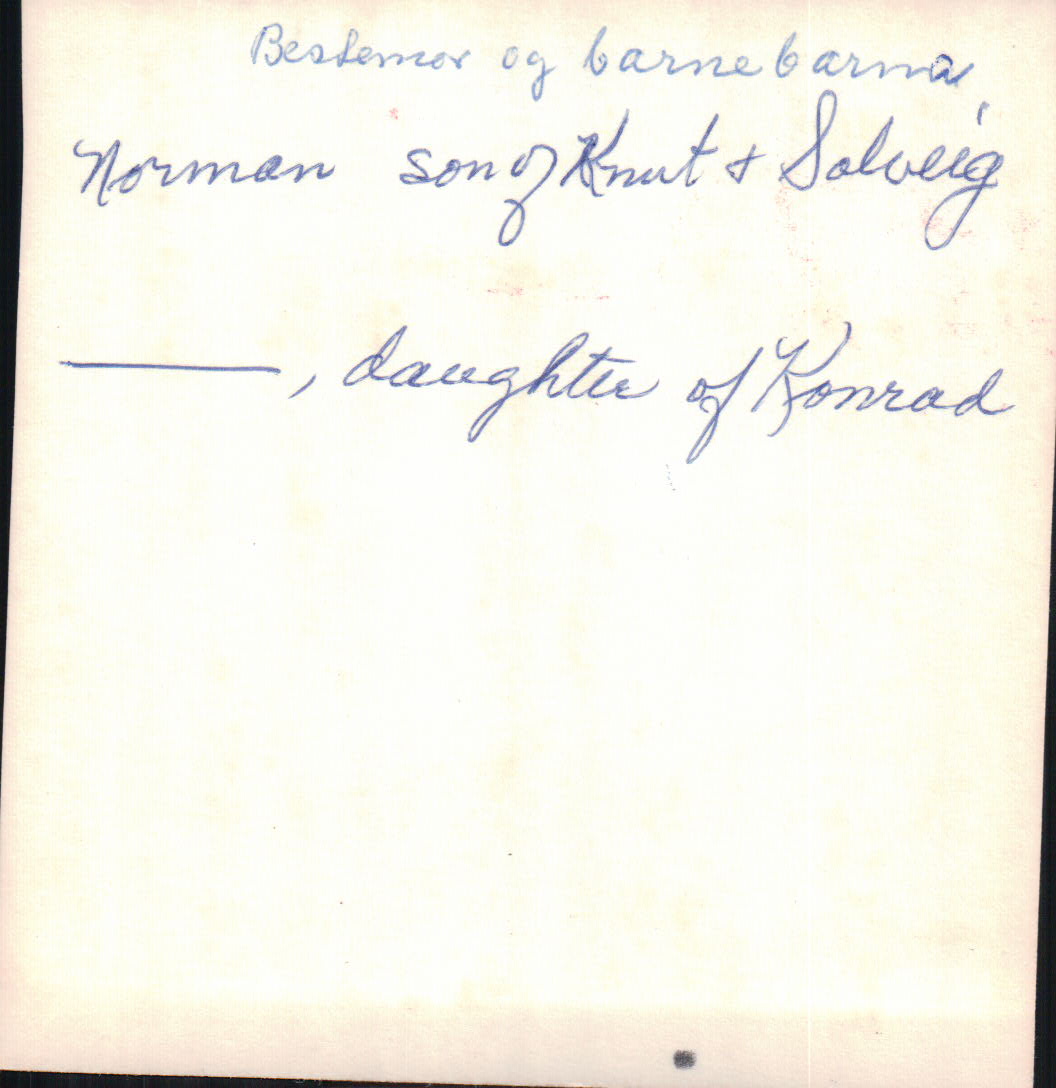 Bestemor og barnebarna
Norman son of Knut + Solveig
———, daughter of Konrad